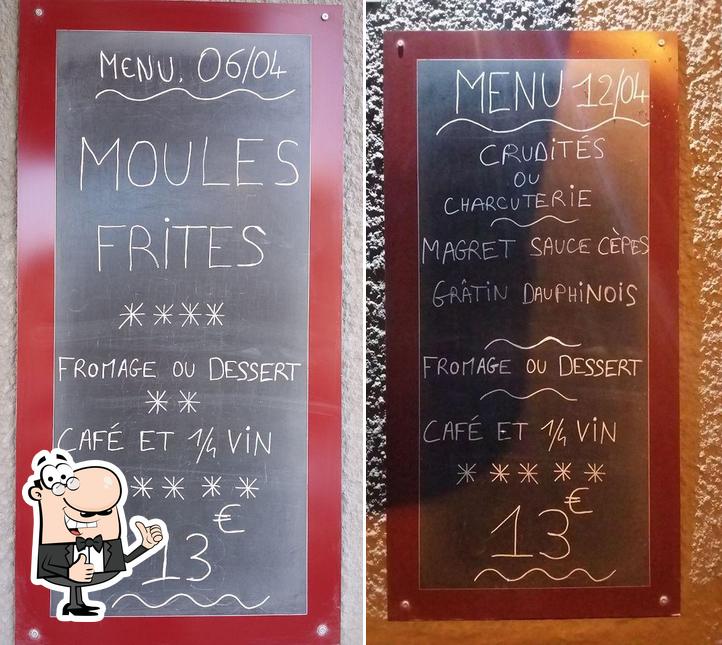 MENU. 06/04
MOULES
FRITES
****
FROMAGE OU DESSERT
**
CAFÉ ET 1/4 VIN
****
13€
MENU 12/04
CRUDITÉS
OU
CHARCUTERIE
MAGRET SAUCE CÈPES
GRÂTIN DAUPHINOIS
FROMAGE OU DESSERT
CAFÉ ET 1/4 VIN
*****
13€